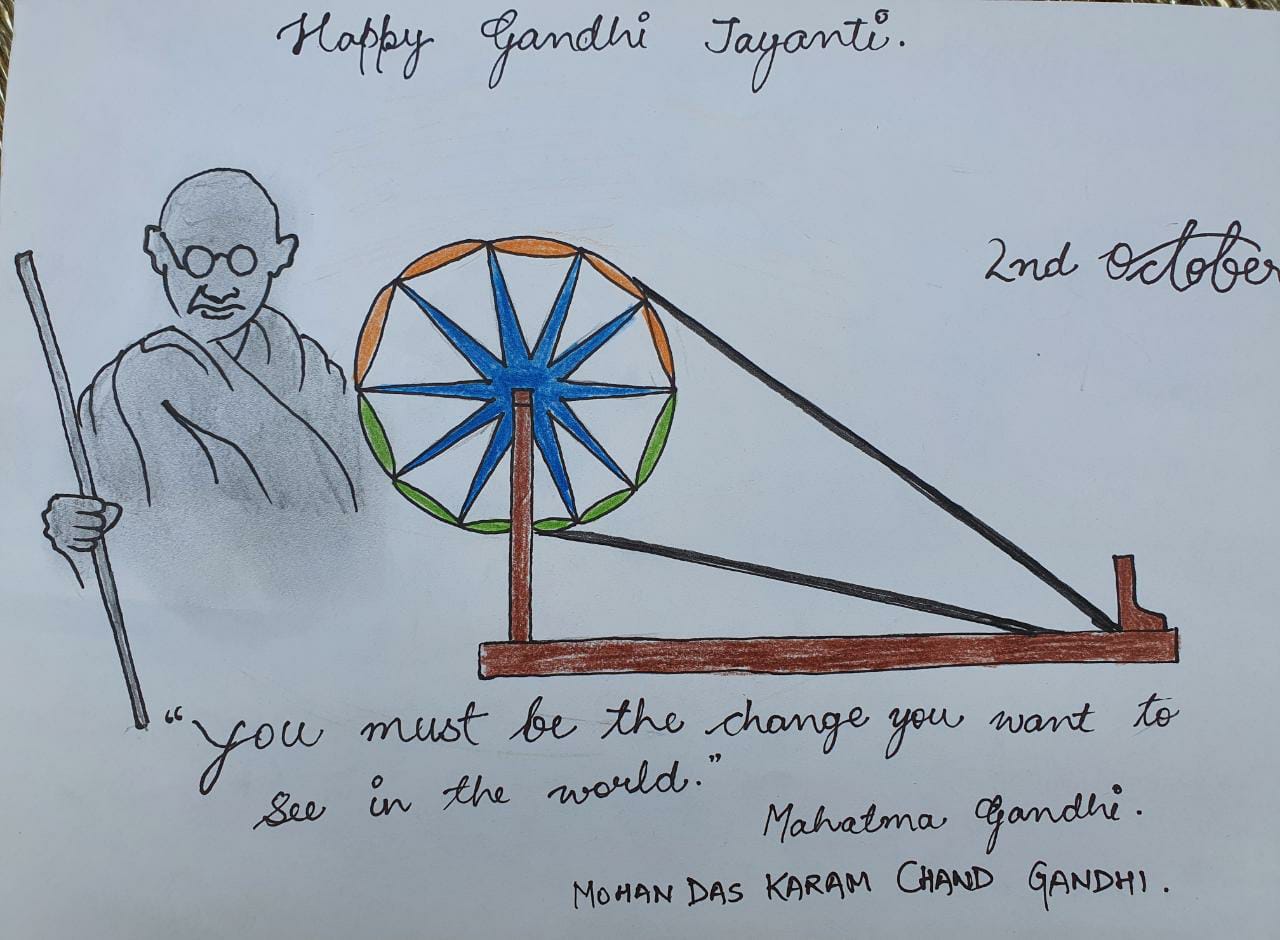 Happy Gandhi Jayanti.
2nd October
"You must be the change you want to
see in the world."
Mahatma Gandhi.
MOHAN DAS KARAM CHAND GANDHI.